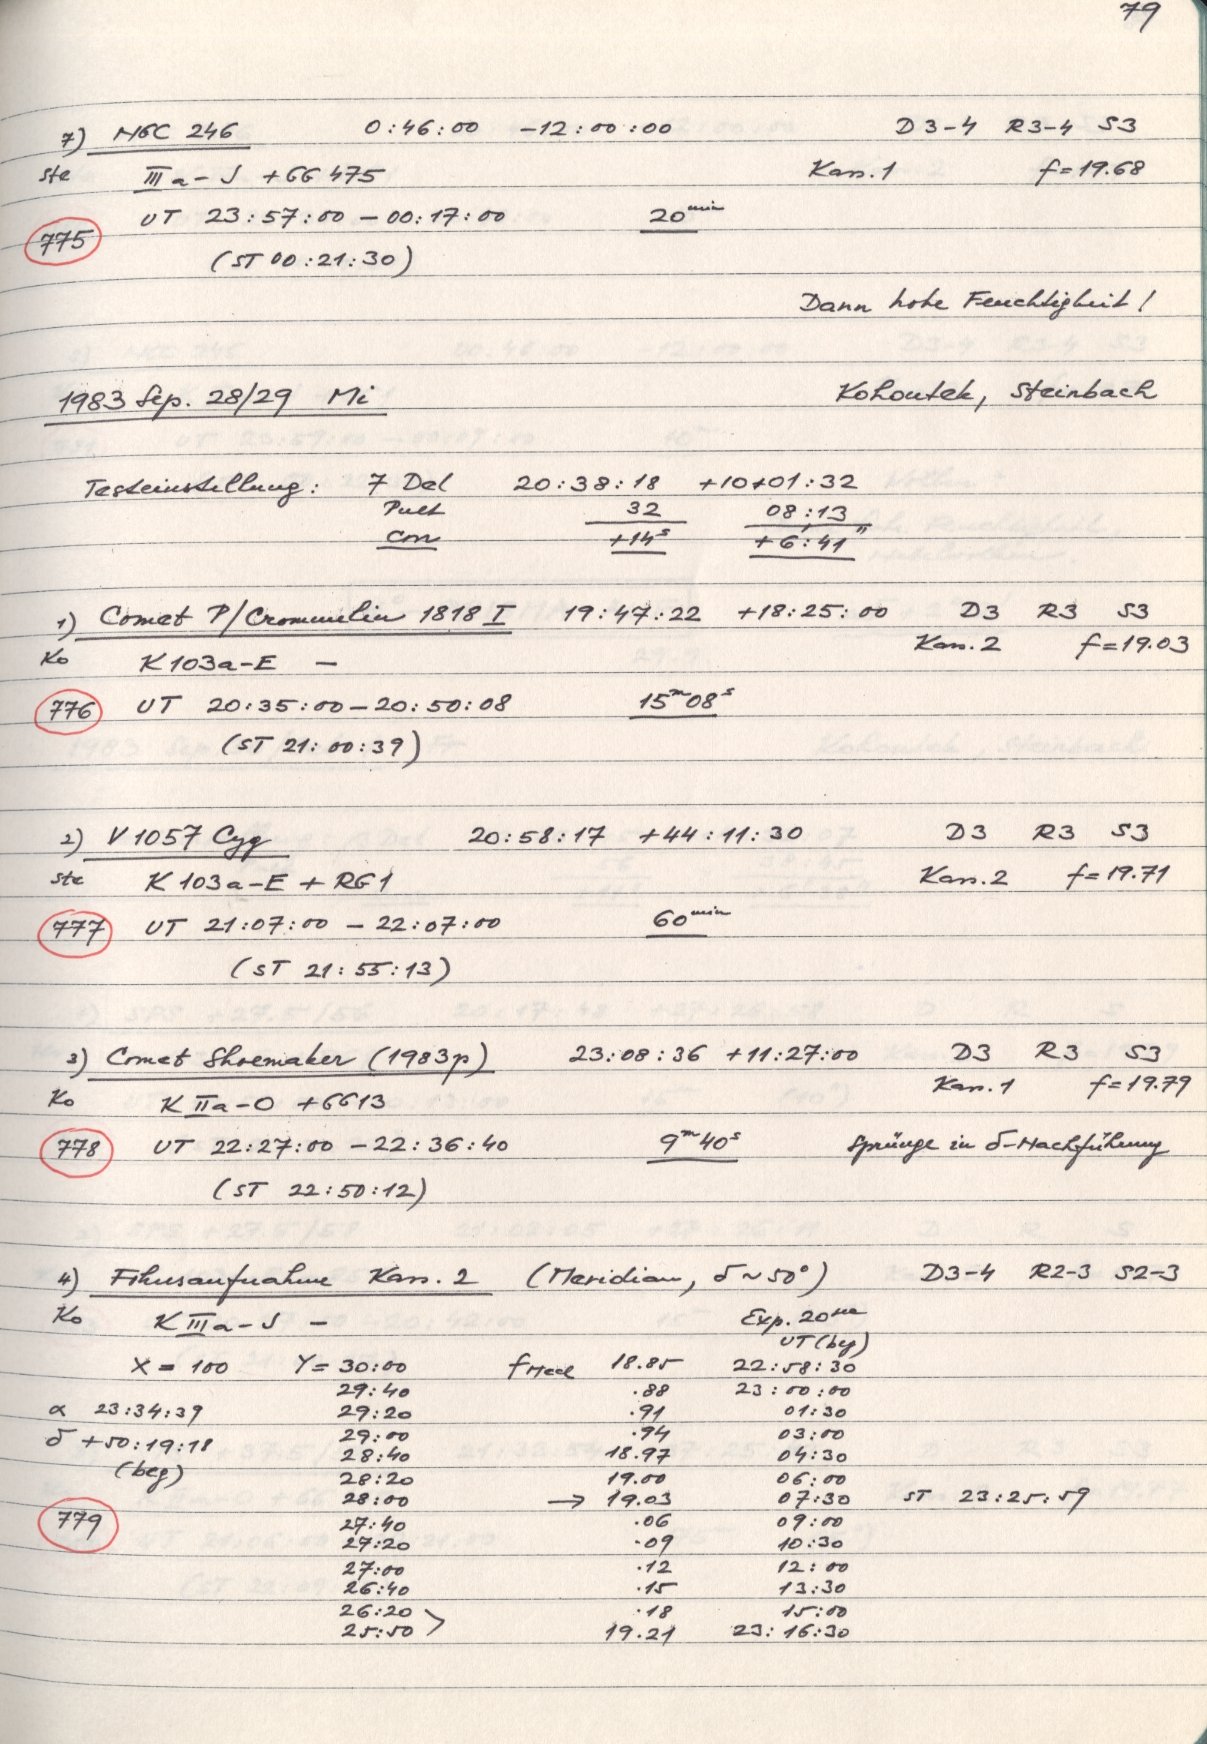 79
7) NGC 246 0:46:00 -12:00:00 D3-4 R3-4 S3
Ste III a-J +GG 475 Kas.1 f=19.68
UT 23:57:00 - 00:17:00 20 min
775
(ST 00:21:30)
Dann hohe Feuchtigkeit!
1983 Sep. 28/29 Mi Kohoutek, Steinbach
Testeinstellung: 7 Del 20:38:18 +10+01:32
Pult 32 08:13
Corr +14s +6':41"
1) Comet P/Crommelin 1818 I 19:47:22 +18:25:00 D3 R3 S3
Kas.2 f=19.03
Ko K 103a-E -
776 UT 20:35:00 - 20:50:08 15m08s
(ST 21:00:39)
2) V 1057 Cyg 20:58:17 +44:11:30 D3 R3 S3
Ste K 103a-E + RG1 Kas.2 f=19.71
777 UT 21:07:00 - 22:07:00 60 min
(ST 21:55:13)
3) Comet Shoemaker (1983p) 23:08:36 +11:27:00 D3 R3 S3
Kas.1 f=19.79
Ko K IIa-O +GG13
778 UT 22:27:00 - 22:36:40 9m40s Sprünge in δ-Nachführung
(ST 22:50:12)
4) Fokusaufnahme Kas.2 (Meridian, δ~50°) D3-4 R2-3 S2-3
Ko K IIIa-J - Exp. 20
UT (beg)
X = 100 Y = 30:00 f 18.85 22:58:30
29:40 .88 23:00:00
α 23:34:39 29:20 .91 01:30
29:00 .94 03:00
δ +50:19:18 28:40 18.97 04:30
(beg) 28:20 19.00 06:00
28:00 → 19.03 07:30 ST 23:25:59
779 27:40 .06 09:00
27:20 .09 10:30
27:00 .12 12:00
26:40 .15 13:30
26:20 .18 15:00
25:50 > 19.21 23:16:30